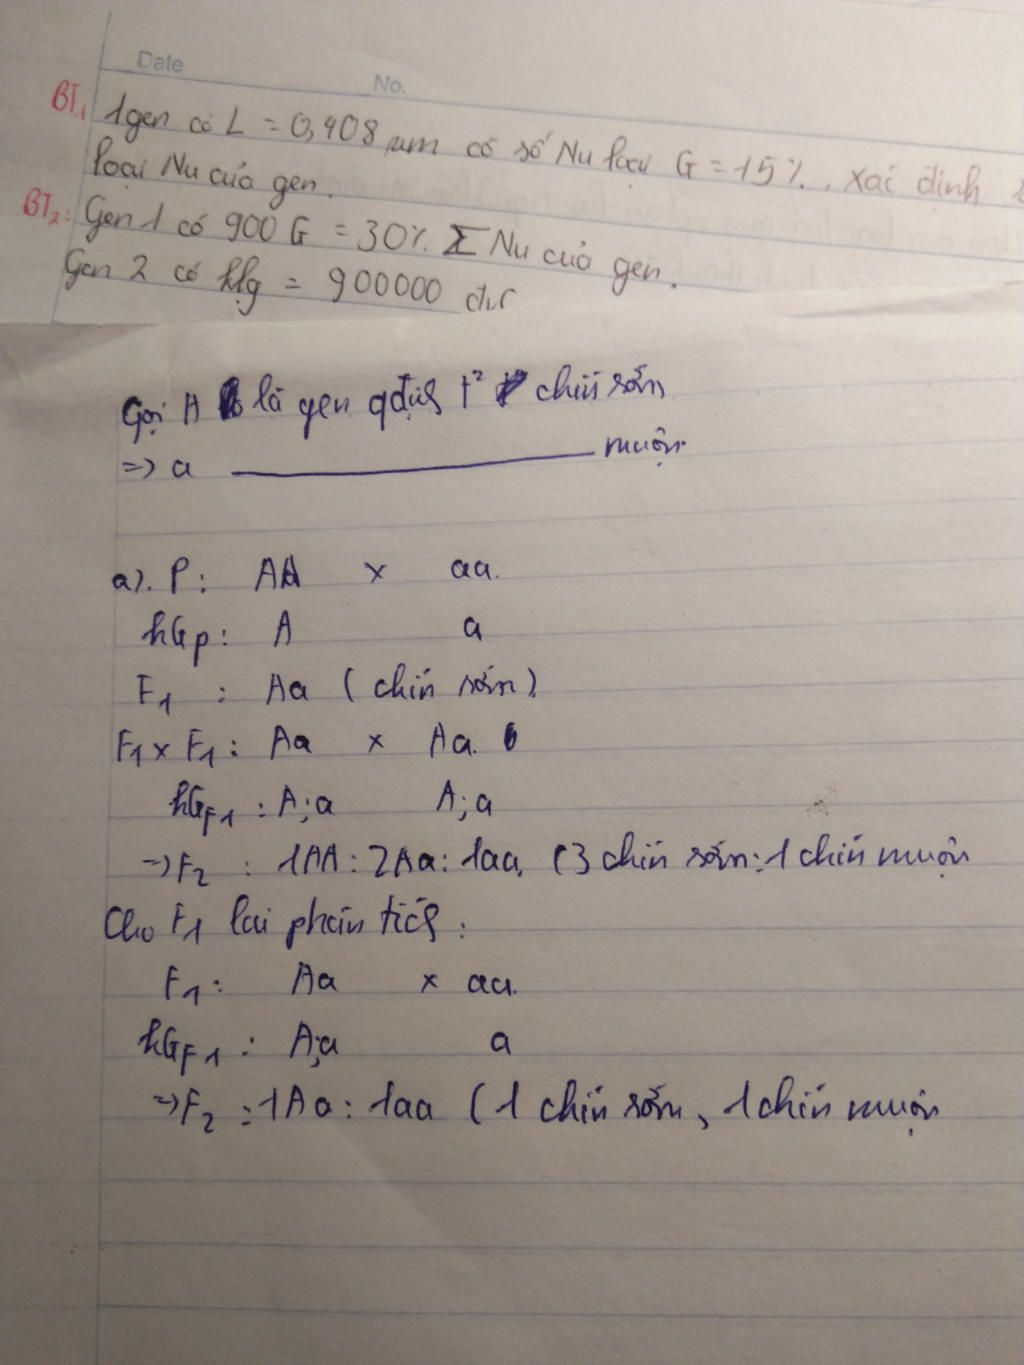 Date No.
BT1 1gen có L = 0,408 µm có số Nu loại G = 15%. , xác định
loại Nu của gen.
BT2: Gen 1 có 900 G = 30% Σ Nu của gen.
Gen 2 có klg = 900000 đvc
Gọi A là gen qđịnh t² chín sớm
=> a ———— muộn.
a). P: AA x aa.
hGp: A a
F1 : Aa ( chín sớm)
F1 x F1 : Aa x Aa.
hGF1 : A;a A;a
=> F2 : 1AA : 2Aa : 1aa. (3 chín sớm : 1 chín muộn
Cho F1 lai phân tích :
F1 : Aa x aa.
hGF1 : A;a a
=> F2 : 1Aa : 1aa ( 1 chín sớm, 1 chín muộn